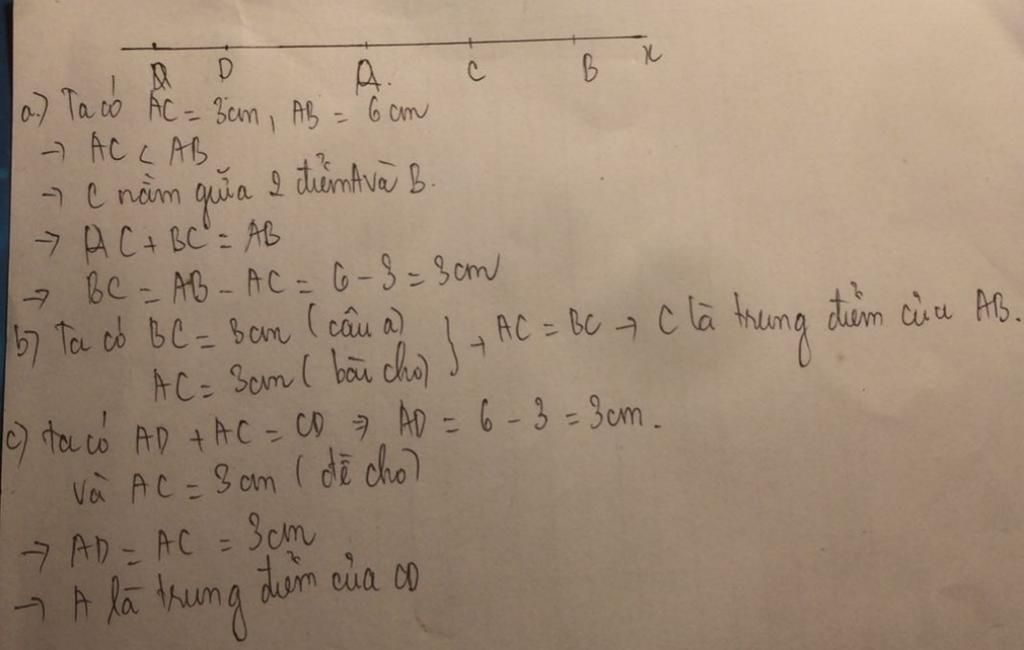 D A C B x
a.) Ta có AC = 3cm, AB = 6cm
→ AC < AB
→ C nằm giữa 2 điểm A và B.
→ AC + BC = AB
→ BC = AB - AC = 6 - 3 = 3cm
b) Ta có BC = 3cm (câu a) } → AC = BC → C là trung điểm của AB.
AC = 3cm (bài cho)
c) ta có AD + AC = CD ⇒ AD = 6 - 3 = 3cm.
và AC = 3cm (đề cho)
→ AD = AC = 3cm
→ A là trung điểm của CD